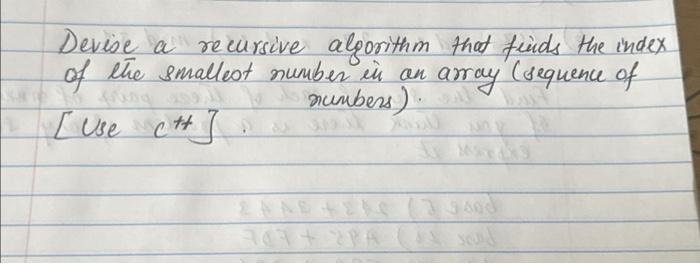 Devise a recursive algorithm that finds the index
of the smallest number in an array (sequence of
numbers).
[Use C++].